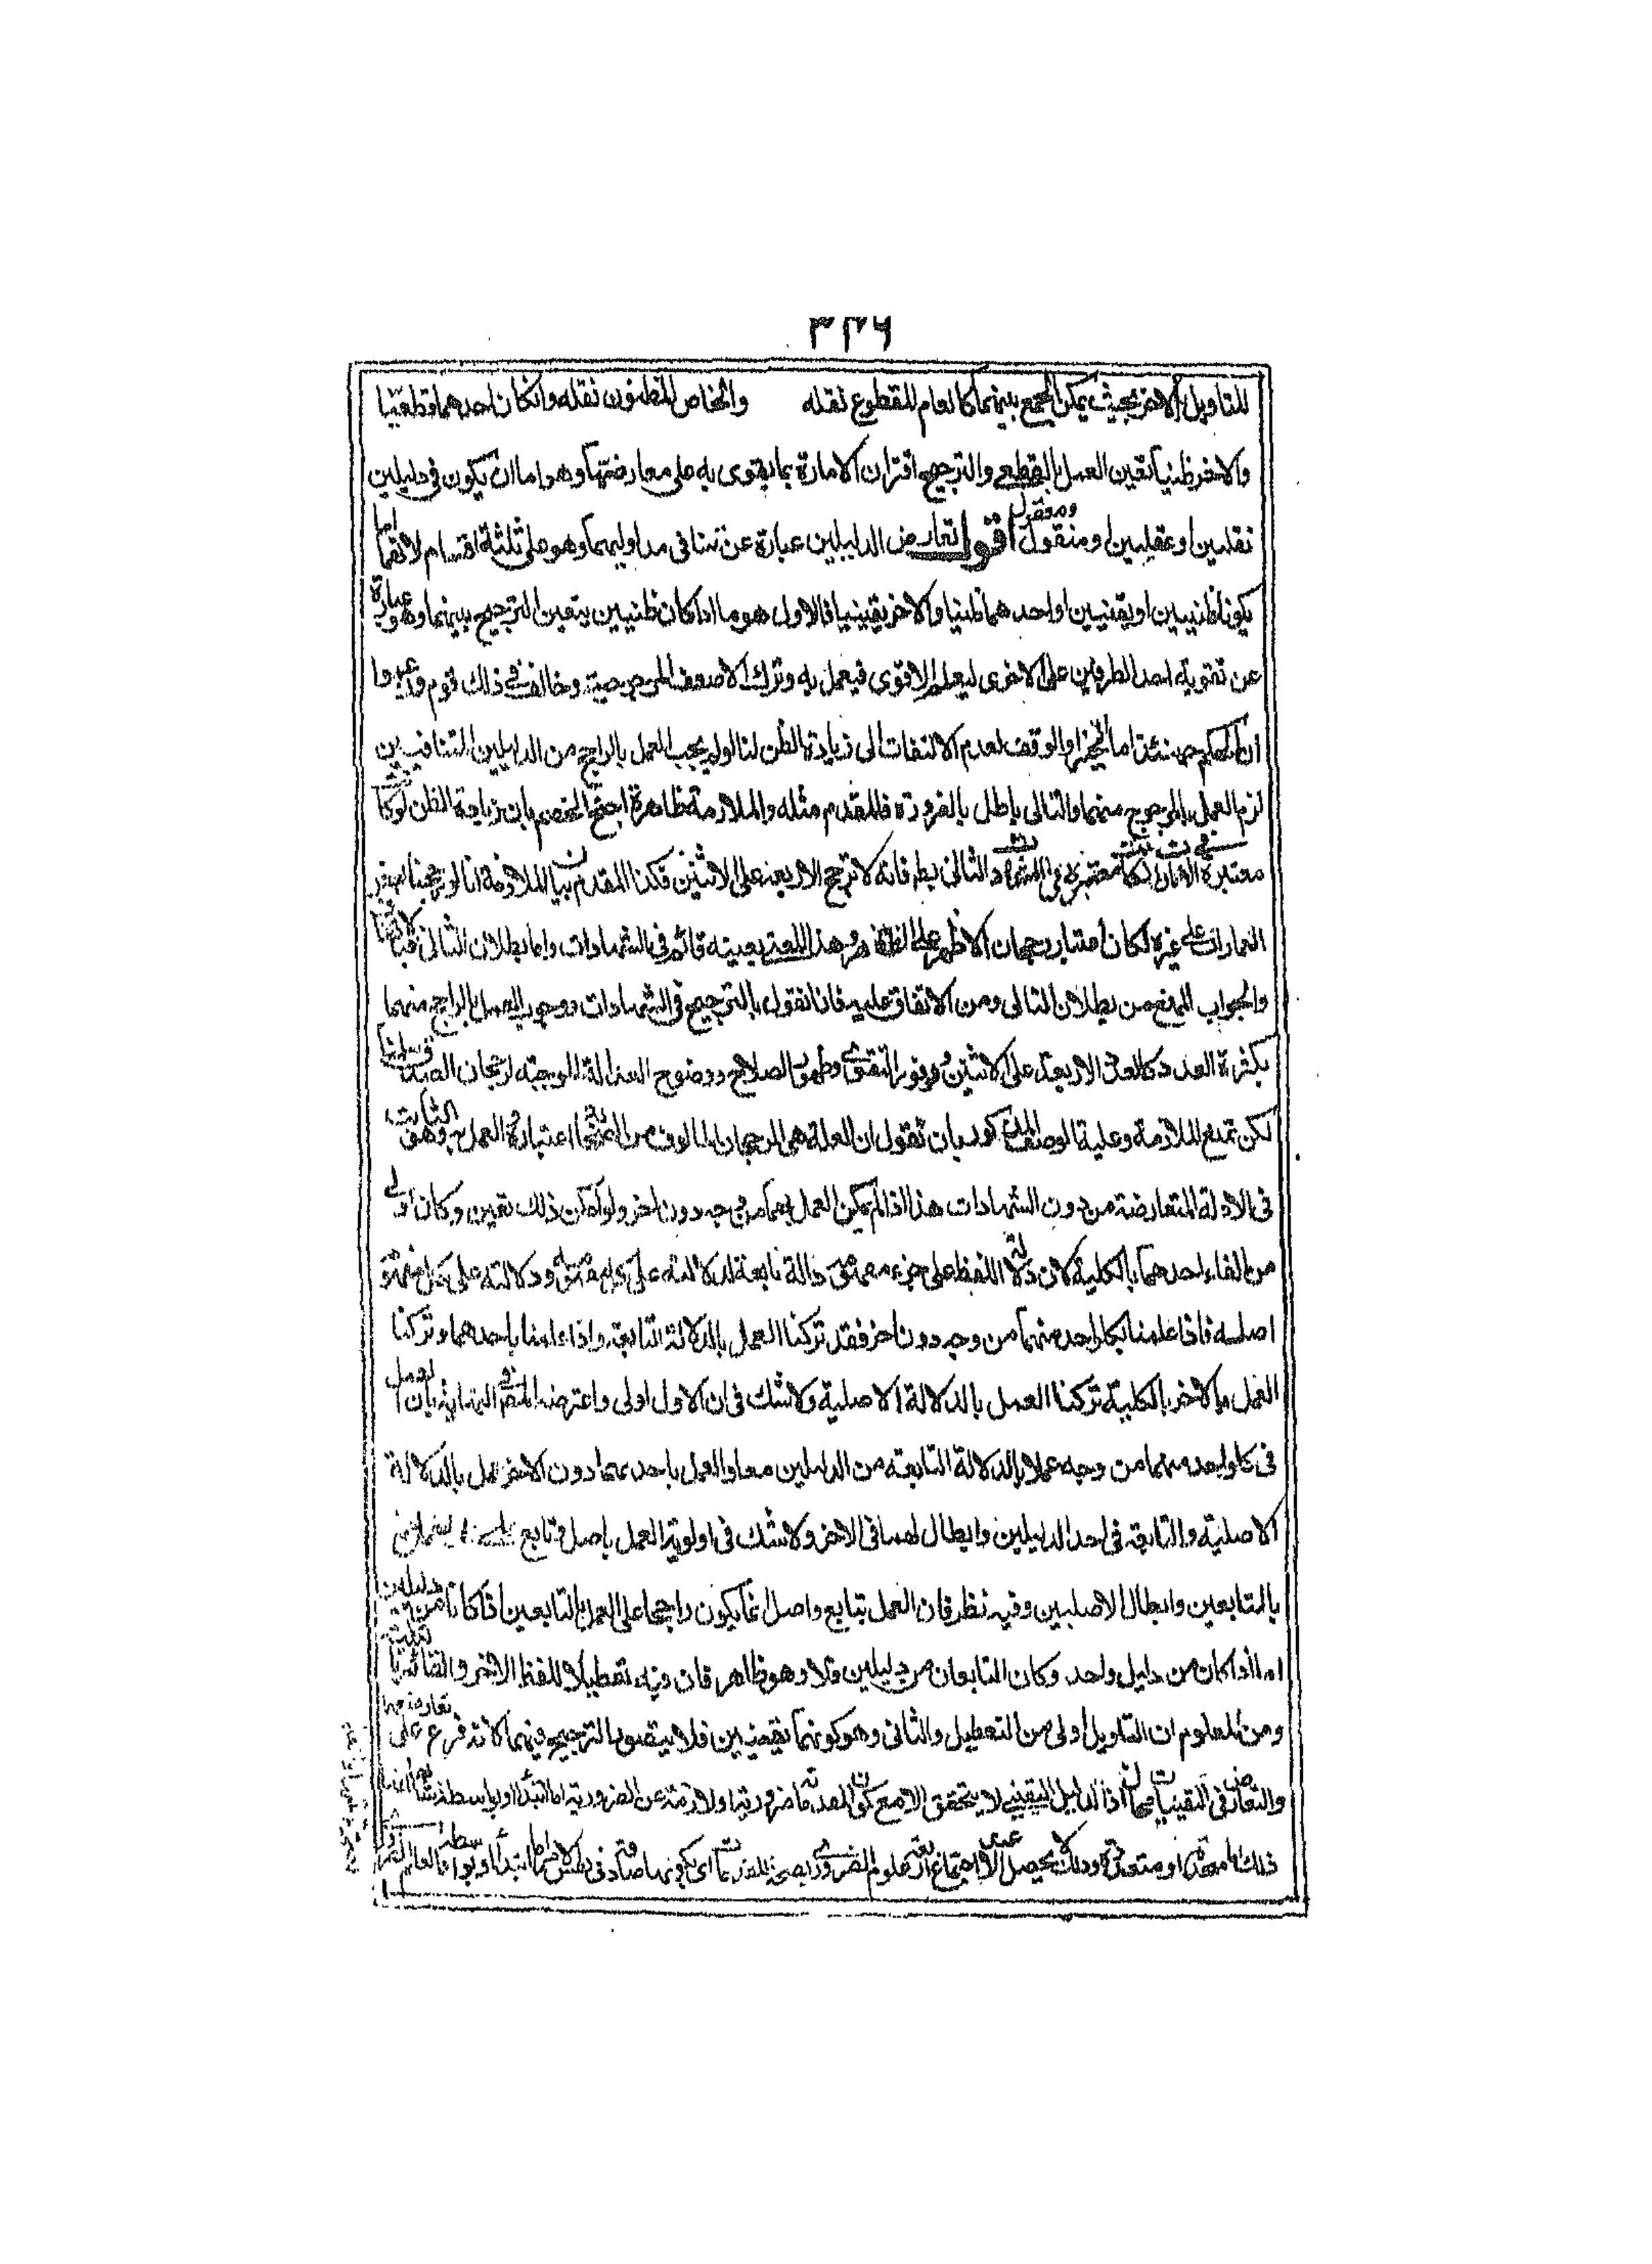 ٣٣٦
للتاويل الاخر بحيث يمكن الجمع بينهما كالعام المقطوع نقله والخاص المظنون نقله وان كان احدهما قطعيا
والاخر ظنيا تعين العمل بالقطعي والترجيح اقتران الامارة بما يقوى به على معارضتها وهو اما ان يكون في دليلين
نقليين او عقليين او منقول ومعقول اقول تعارض الدليلين عبارة عن تنافى مدلوليهما وهو على ثلثة اقسام لانهما اما
يكونا ظنيين او يقينيين او احدهما ظنيا والاخر يقينيا فالاول هو ما اذا كان ظنيين يتعين الترجيح بينهما وهو عبارة
عن تقوية احد الطرفين على الاخرى ليعلم الاقوى فيعمل به وترك الاضعف المرجوحية وخالف في ذلك قوم
ان الحكم حينئذ اما التخير او الوقف لعدم الالتفات الى زيادة الظن لنا لو لم يجب العمل بالراجح من الدليلين المتنافيين
لزم العمل بالمرجوح منهما والتالى باطل بالضرورة فالمقدم مثله والملازمة ظاهرة احتج الخصم بان زيادة الظن لو كانت
معتبرة في الامارات لكانت معتبرة في الشهادات والتالى بط فانه لا ترجح الاربعة على الاثنين فكذا المقدم بيان الملازمة انا لو رجحنا بعض
الامارات على غيره لكان اعتبار رجحان الاظهر على الظاهر وهذا المعنى بعينه قائم في الشهادات واما بطلان التالى
والجواب المنع من بطلان التالى ومن الاتفاق عليه فانا نقول بالترجيح في الشهادات ووجوب العمل بالراجح منهما
بكثرة العدد كالعدل الاربعة على الاثنين ووفور التقوى وظهور الصلاح ووضوح العدالة الموجبة لرجحان الصدق سلمنا
لكن تمنع الملازمة وعلية الوصف المذكور بان نقول ان العلة هى الرجحان المالوف من الشرع اعتباره في العمل به وهو الثابت
في الادلة المتعارضة من دون الشهادات هذا اذا لم يمكن العمل بهما من وجه دون اخر ولو امكن ذلك تعين وكان اولى
من الغاء احدهما بالكلية لان دلالة اللفظ على جزء مفهومه دلالة تابعة لدلالته على كل مفهومه ودلالته على كل مفهومه
اصلية فاذا عملنا بكل واحد منهما من وجه دون اخر فقد تركنا العمل بالدلالة التابعة واذا عملنا باحدهما وتركنا
العمل بالاخر بالكلية تركنا العمل بالدلالة الاصلية ولا شك في ان الاول اولى واعترضه المصنف في النهاية بان العمل
في كل واحد منهما من وجه عملا بالدلالة التابعة من الدليلين معا والعمل باحدهما دون الاخر عمل بالدلالة
الاصلية والتابعة في احد الدليلين وابطال لهما في الاخر ولا شك في اولوية العمل باصل وتابع
بالتابعين وابطال الاصليين وفيه نظر فان العمل بتابع واصل انما يكون راجحا على العمل بالتابعين اذا كانا من دليلين
اما اذا كان من دليل واحد وكان التابعان من دليلين فلا وهو ظاهر فان فيه تعطيلا للفظ الاخر والغائه بالكلية
ومن المعلوم ان التاويل اولى من التعطيل والثانى وهو كونهما يقينيين فلا يتصور الترجيح فيهما لانه فرع على تعارضهما
والتعارض في اليقينيات محال اذ الدليل اليقيني لا يتحقق الا مع كون المقدمات ضرورية او لازمة عن الضرورية اما ابتداء او بواسطة
ذلك او متعددة وذلك لا يحصل الا عند اجتماع العلوم الضرورية بصحة المقدمات اى كونها صادقة في نفس الامر اما ابتداء او بواسطة